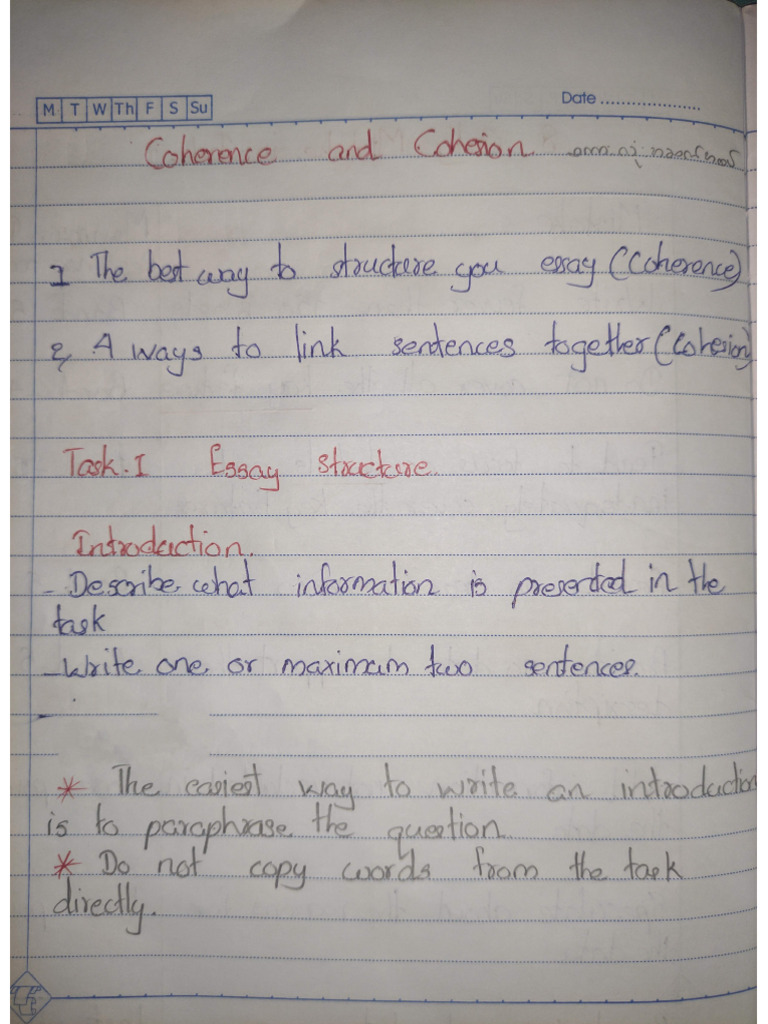 M T W Th F S Su
Date ....................
Coherence and Cohesion
1 The best way to structure you essay (Coherence)
2, 4 ways to link sentences together (Cohesion)
Task. I Essay structure
Introduction.
- Describe what information is presented in the
task
- Write one or maximum two sentences.
* The easiest way to write an introduction
is to paraphrase the question
* Do not copy words from the task
directly.